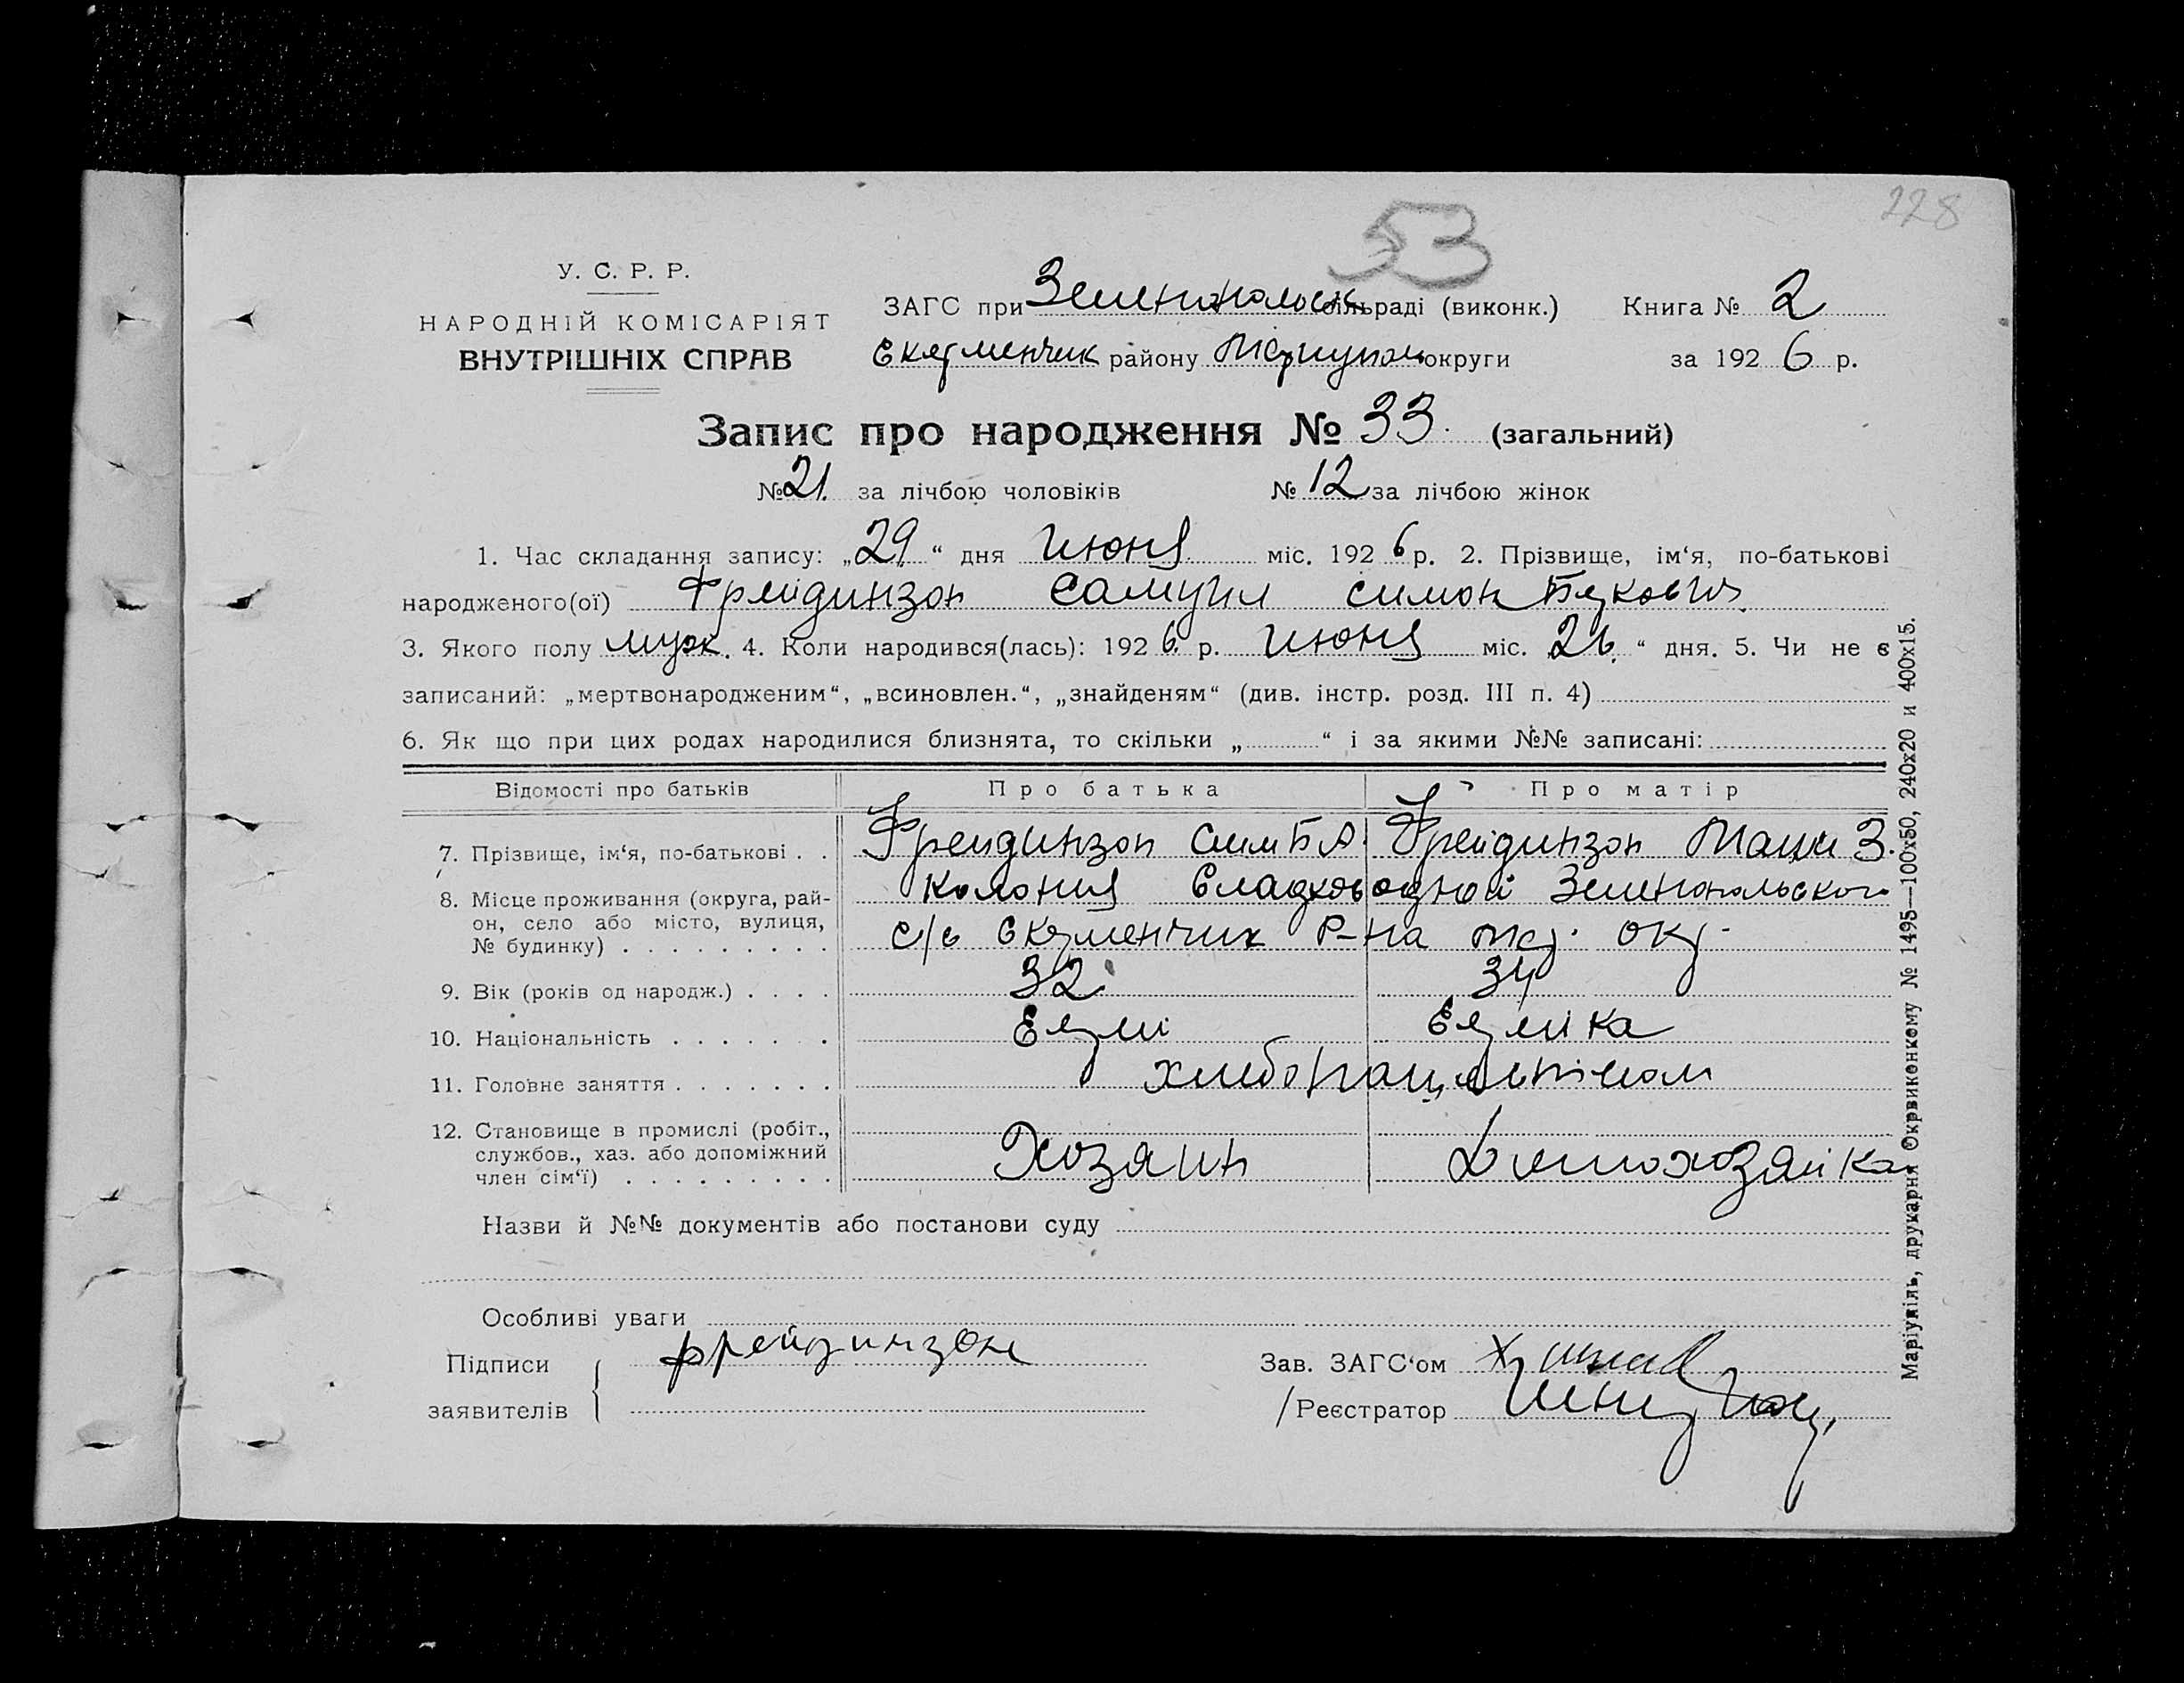 228
53
У. С. Р. Р.
НАРОДНІЙ КОМІСАРІЯТ
ВНУТРІШНІХ СПРАВ
ЗАГС при Зеленопольск сільраді (виконк.) Книга № 2
району округи за 192 6 р.
Запис про народження № 33. (загальний)
№ 21. за лічбою чоловіків № 12 за лічбою жінок
1. Час складання запису: „29“ дня июня міс. 192 6 р. 2. Прізвище, ім‘я, по-батькові
народженого(ої) Фрейдинзон Самуил Симон
3. Якого полу муж. 4. Коли народився(лась): 192 6. р. июня міс. 26. “ дня. 5. Чи не є
записаний: „мертвонародженим“, „всиновлен.“, „знайденям“ (див. інстр. розд. III п. 4)
6. Як що при цих родах народилися близнята, то скільки „ “ і за якими №№ записані:
Відомості про батьків Про батька Про матір
7. Прізвище, ім‘я, по-батькові . . Фрейдинзон Сим Фрейдинзон З.
8. Місце проживання (округа, рай- Колония Сладководной Зеленопольского
он, село або місто, вулиця, с/с Р-на окр.
№ будинку) . . . . . . . . .
9. Вік (років од народж.) . . . . 32 34
10. Національність . . . . . . .
11. Головне заняття . . . . . . .
12. Становище в промислі (робіт.,
службов., хаз. або допоміжний Хозяин Домохозяйка
член сім‘ї) . . . . . . . . .
Назви й №№ документів або постанови суду
Особливі уваги
Підписи фрейдинзон Зав. ЗАГС‘ом
заявителів /Реєстратор
Маріупіль, друкарня Окрвиконкому № 1495—100х50, 240х20 и 400х15.